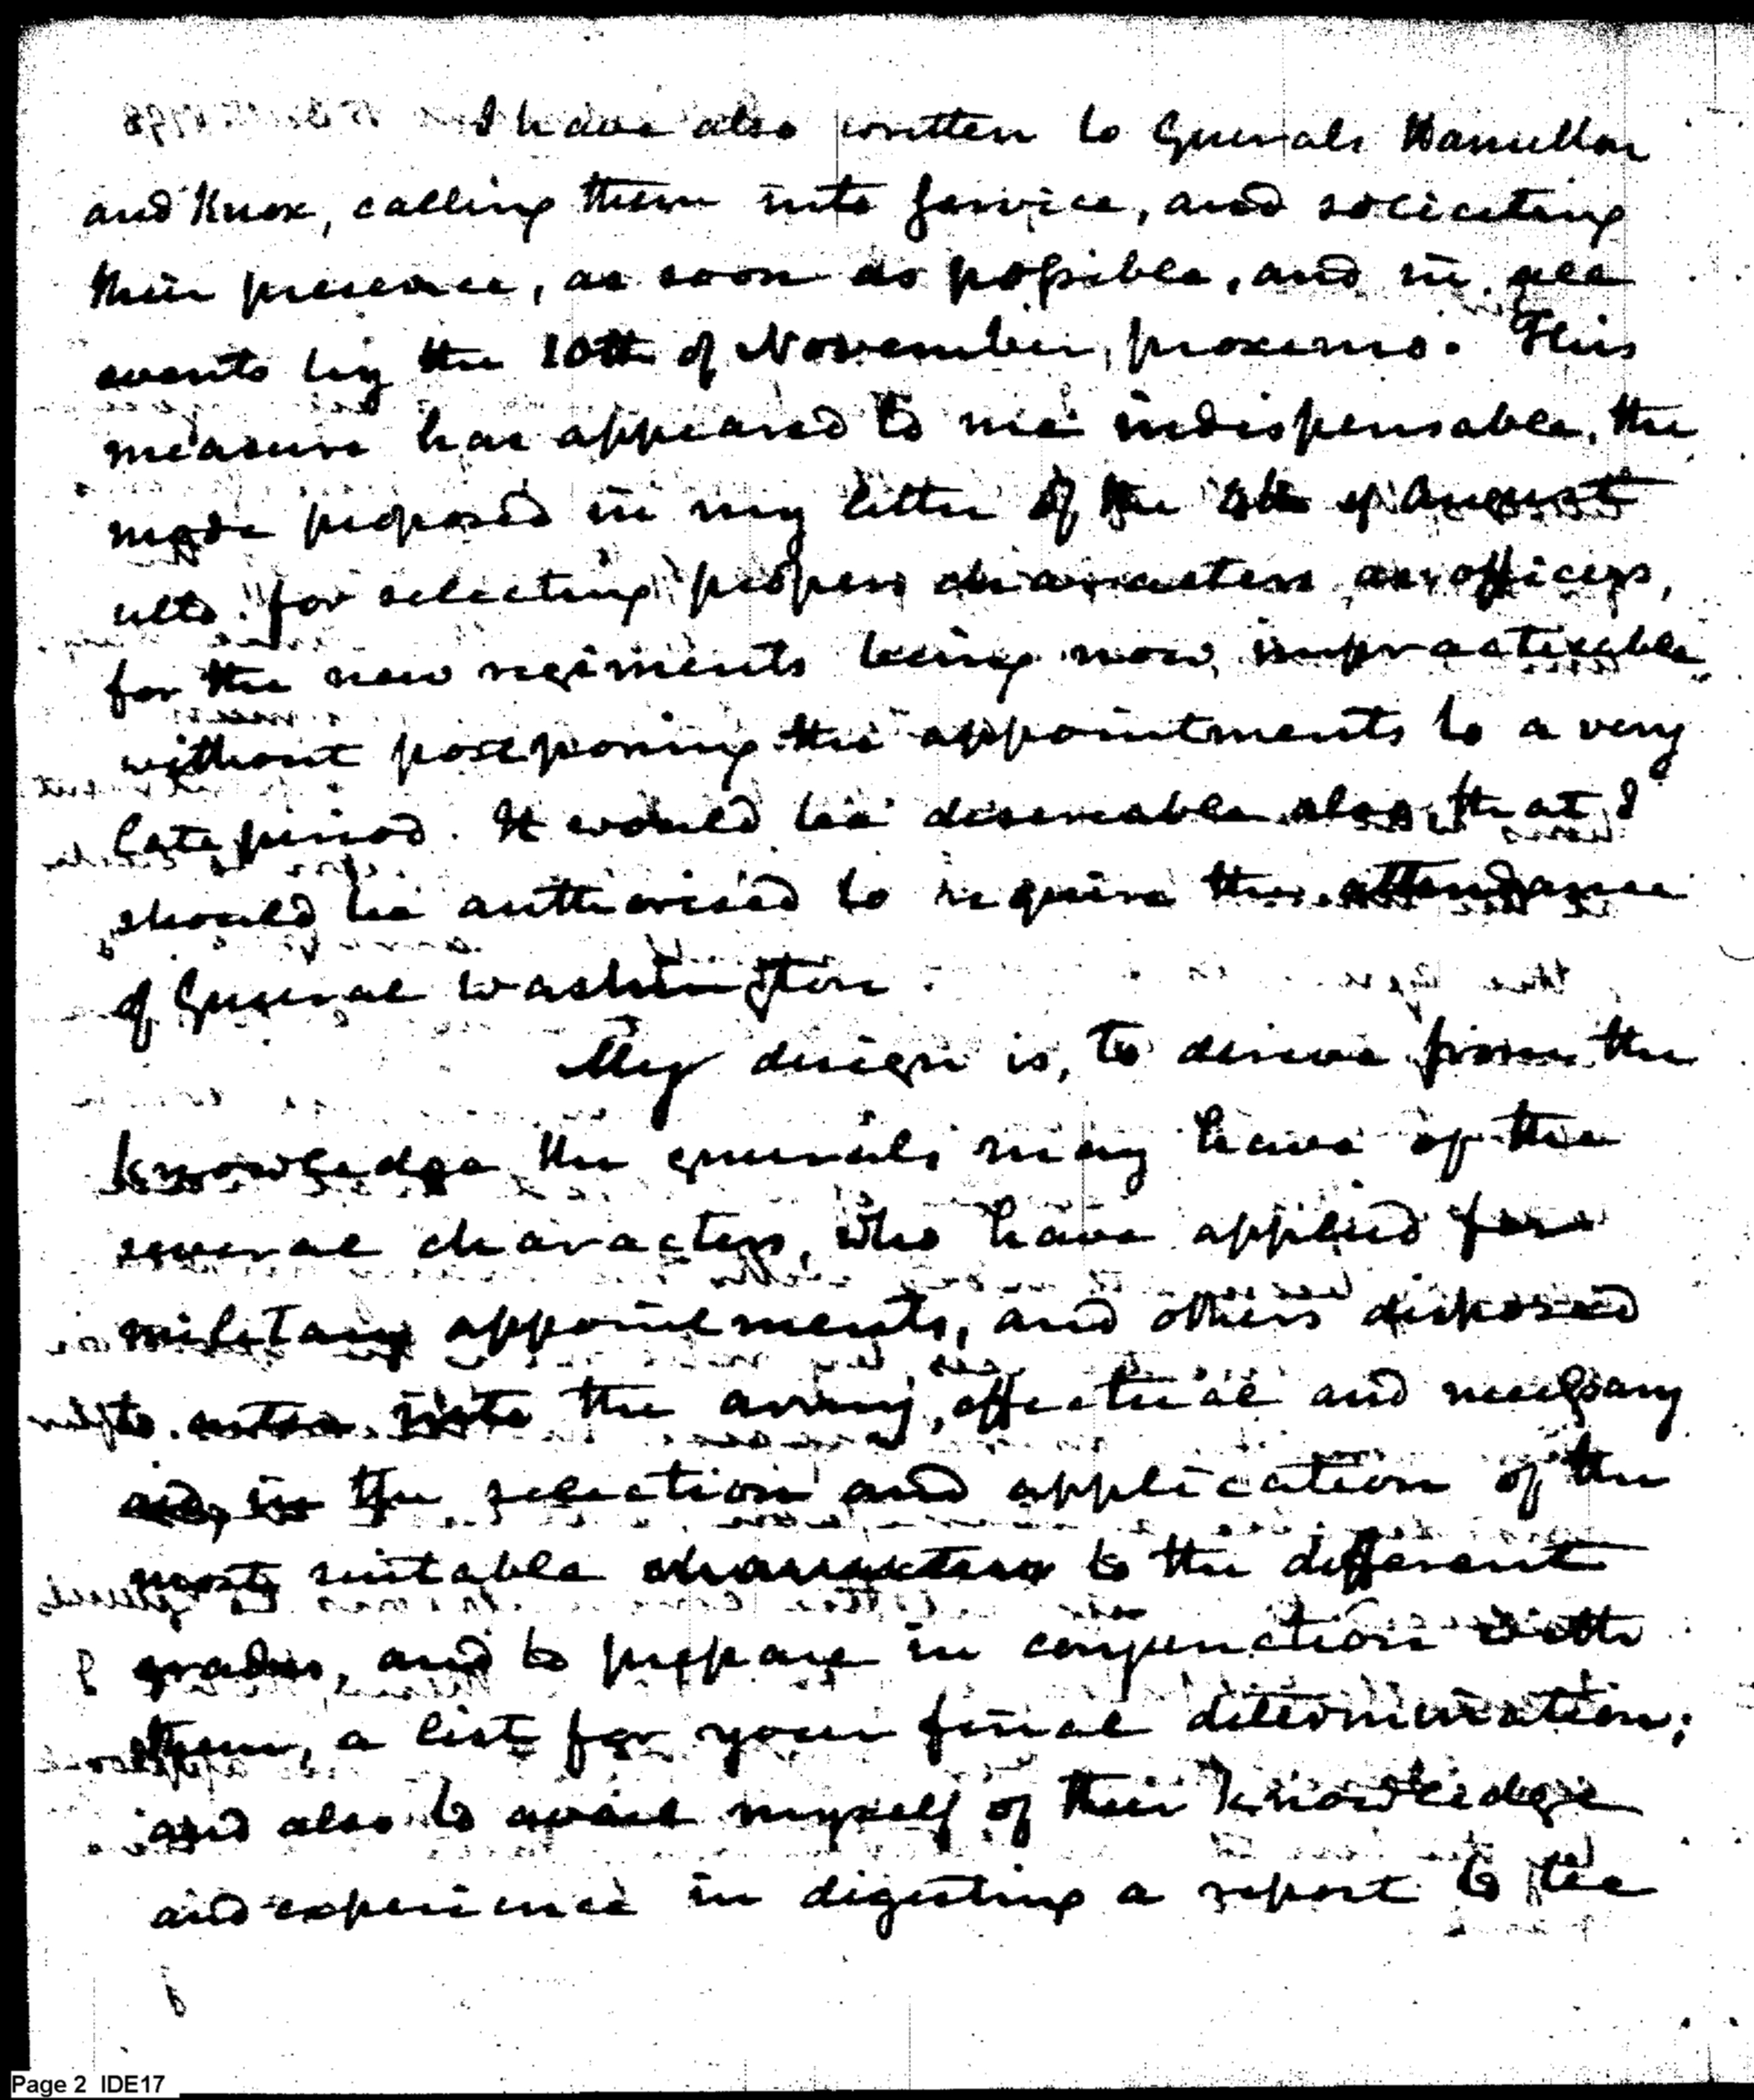 I have also written to Generals Hamilton
and Knox, calling them into service, and soliciting
their presence, as soon as possible, and in all
events by the 10th of November, proximo. This
measure has appeared to me indispensable, the
mode proposed in my letter of the of August
ulto. for selecting proper characters as officers,
for the new regiments being now impracticable
without postponing the appointments to a very
late period. It would be desireable also, that I
should be authorised to require the attendance
of General Washington.
My design is, to derive from the
knowledge the generals may have of the
several characters, who have applied for
military appointments, and others disposed
to enter into the army, effectual and necessary
aid, in the selection and application of the
most suitable characters to the different
grades, and to prepare in conjunction with
them, a list for your final determination;
and also to avail myself of their knowledge
and experience in digesting a report to the
Page 2 IDE17